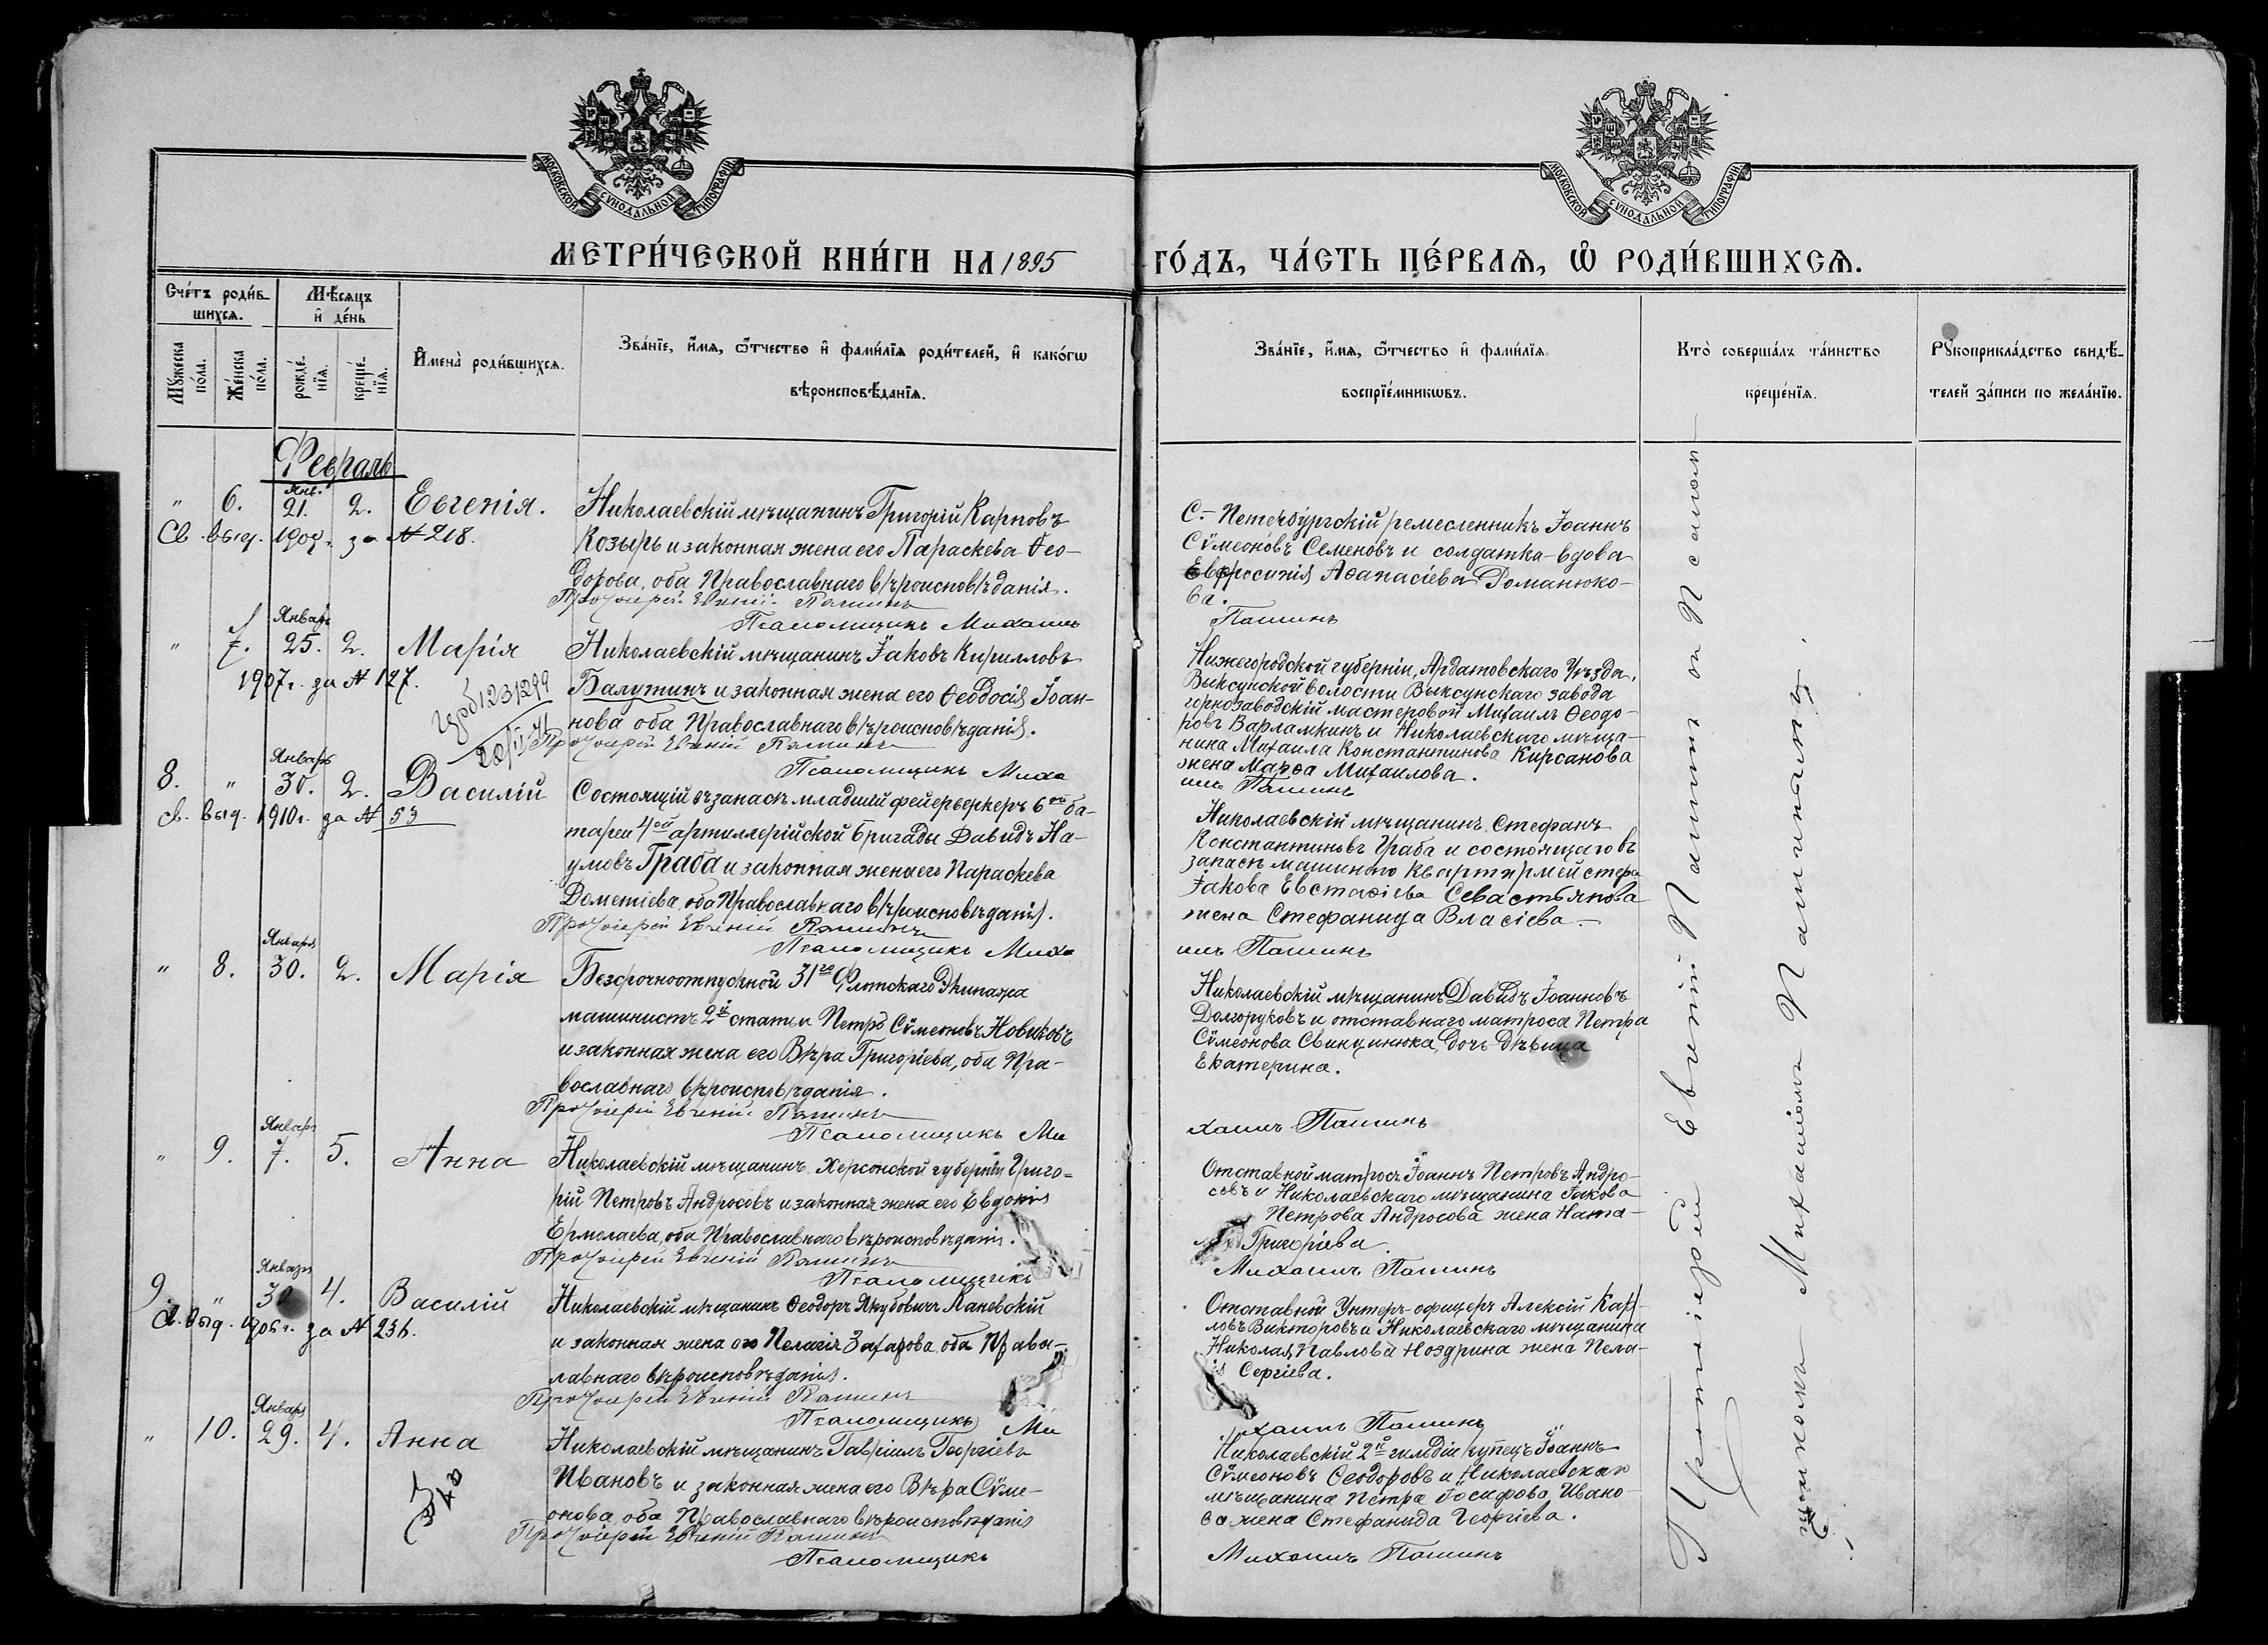 МОСКОВСКОЙ СѴНОДАЛЬНОЙ ТИПОГРАФІИ
МОСКОВСКОЙ СѴНОДАЛЬНОЙ ТИПОГРАФІИ
МЕТРИ́ЧЕСКОЙ КНИ́ГИ НА 1895
ГО́ДЪ, ЧА́СТЬ ПЕ́РВАѦ, Ѡ РОДИ́ВШИХСѦ.
Сче́тъ роди́в-
шихсѧ.
Мѣ́сѧцъ
и де́нь
Мꙋ́жеска
по́ла.
Же́нска
по́ла.
рожде́-
нїѧ.
креще́-
нїѧ.
И҆мена̀ роди́вшихсѧ.
Зва́нїе, и҆́мѧ, ѻ҆́тчество и҆ фами́лїѧ роди́телей, и҆ како́гѡ
вѣроисповѣ́данїѧ.
Зва́нїе, и҆́мѧ, ѻ҆́тчество и҆ фами́лїѧ
воспрїе́мникѡвъ.
Кто̀ соверша́лъ та́инство
креще́нїѧ.
Рꙋкоприкла́дство свидѣ́-
телей за́писи по жела́нїю.
Февраль
Янв.
" 6. 21. 2. Евгенія. Николаевскій мѣщанинъ Григорій Карповъ
Св. выд. 1909 г. за № 218.
Козырь и законная жена его Параскева Ѳео-
дорова, оба Православнаго вѣроисповѣданія.
Протоіерей Евгеній Пашинъ
Псаломщикъ Михаилъ
С.-Петербургскій ремесленникъ Іоаннъ
Сѵмеоновъ Семеновъ и солдатка-вдова
Евфросинія Аѳанасіева Романюко-
ва.
Пашинъ
Январь
" 7. 25. 2. Марія Николаевскій мѣщанинъ Іаковъ Кирилловъ
1907 г. за № 127.
Балутинъ и законная жена его Ѳеодосія Іоан-
нова оба Православнаго вѣроисповѣданія.
Протоіерей Евгеній Пашинъ
Псаломщикъ Миха
Нижегородской губерніи, Ардатовскаго Уѣзда,
Выксунской волости Выксунскаго завода
горнозаводскій мастеровой Михаилъ Ѳеодо-
ровъ Варламкинъ и Николаевскаго мѣща-
нина Михаила Константинова Кирсанова
жена Марѳа Михаилова.
илъ Пашинъ
Январь
8. " 30. 2. Василій Состоящій въ запасѣ младшій фейерверкеръ 6ой ба-
Св. выд. 1910 г. за № 53
тареи 4ой артиллерійской бригады Давидъ На-
умовъ Граба и законная жена его Параскева
Дометіева, оба Православнаго вѣроисповѣданія.
Протоіерей Евгеній Пашинъ
Псаломщикъ Миха
Николаевскій мѣщанинъ Стефанъ
Константиновъ Граба и состоящаго въ
запасѣ машиннаго квартирмейстера
Іакова Евстаѳіева Севастьянова
жена Стефанида Власіева.
илъ Пашинъ
Январь
" 8. 30. 2. Марія Безсрочноотпускной 31го Флотскаго Экипажа
машинистъ 2й статьи Петръ Сѵмеоновъ Новиковъ
и законная жена его Вѣра Григоріева, оба Пра-
вославнаго вѣроисповѣданія.
Протоіерей Евгеній Пашинъ
Псаломщикъ Ми
Николаевскій мѣщанинъ Давидъ Іоанновъ
Долгоруковъ и отставнаго матроса Петра
Сѵмеонова Свинцинюка дочь дѣвица
Екатерина.
хаилъ Пашинъ
Январь
" 9. 7. 5. Анна Николаевскій мѣщанинъ, Херсонской губерніи Григо-
рій Петровъ Андросовъ и законная жена его Евдокія
Ермолаева, оба Православнаго вѣроисповѣданія.
Протоіерей Евгеній Пашинъ
Псаломщикъ
Отставной матросъ Іоаннъ Петровъ Андро-
совъ и Николаевскаго мѣщанина Іакова
Петрова Андросова жена Ната-
Григоріева.
Михаилъ Пашинъ
Январь
9. " 30 4. Василій Николаевскій мѣщанинъ Ѳеодоръ Якубовичъ Каневскій
Св. выд. 1906 г. за № 236.
и законная жена его Пелагія Захарова, оба Правос-
лавнаго вѣроисповѣданія.
Протоіерей Евгеній Пашинъ
Псаломщикъ Ми
Отставной Унтеръ-офицеръ Алексій Кар-
ловъ Викторовъ и Николаевскаго мѣщанина
Николая Павлова Ноздрина жена Пела-
ія Сергіева.
хаилъ Пашинъ
Январь
" 10. 29. 4. Анна Николаевскій мѣщанинъ Гавріилъ Георгіевъ
Ивановъ и законная жена его Вѣра Сѵме-
онова, оба Православнаго вѣроисповѣданія
Протоіерей Евгеній Пашинъ
Псаломщикъ
Николаевскій 2й гильдіи купецъ Іоаннъ
Сѵмеоновъ Ѳеодоровъ и Николаевскаго
мѣщанина Петра Іосифова Ивано-
ва жена Стефанида Георгіева.
Михаилъ Пашинъ
Протоіерей Евгеній Пашинъ съ Псалом-
щикомъ Михаиломъ Пашинымъ.